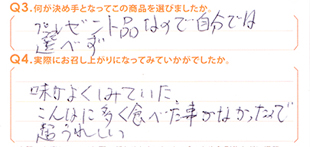 Q3.何が決め手となってこの商品を選びましたか。
プレゼント品なので自分では
選べず
Q4.実際にお召し上がりになってみていかがでしたか。
味がよくしみていた。
こんなに多く食べた事がなかったので
超うれしい